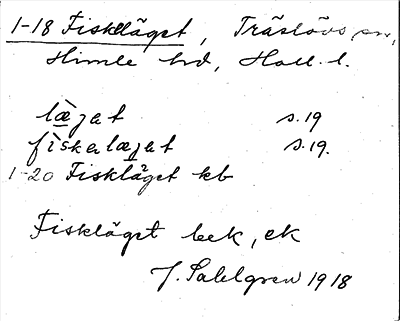 1-18 Fiskläget, Träslövs sn,
Himle hd, Hall. l.
læ̀jat s.19
fìskalæjat s.19.
1-20 Fiskläget kb
Fiskläget bek, ek
J. Sahlgren 1918